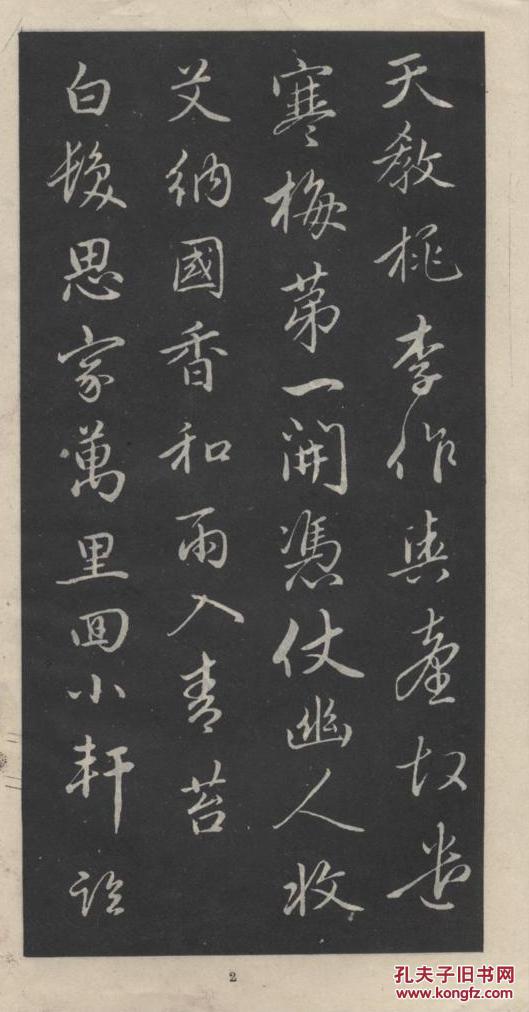 天教桃李作輿臺故遣
寒梅第一開憑仗幽人收
艾納國香和雨入青苔
白髮思家萬里回小軒臨
2
孔夫子旧书网
www.kongfz.com